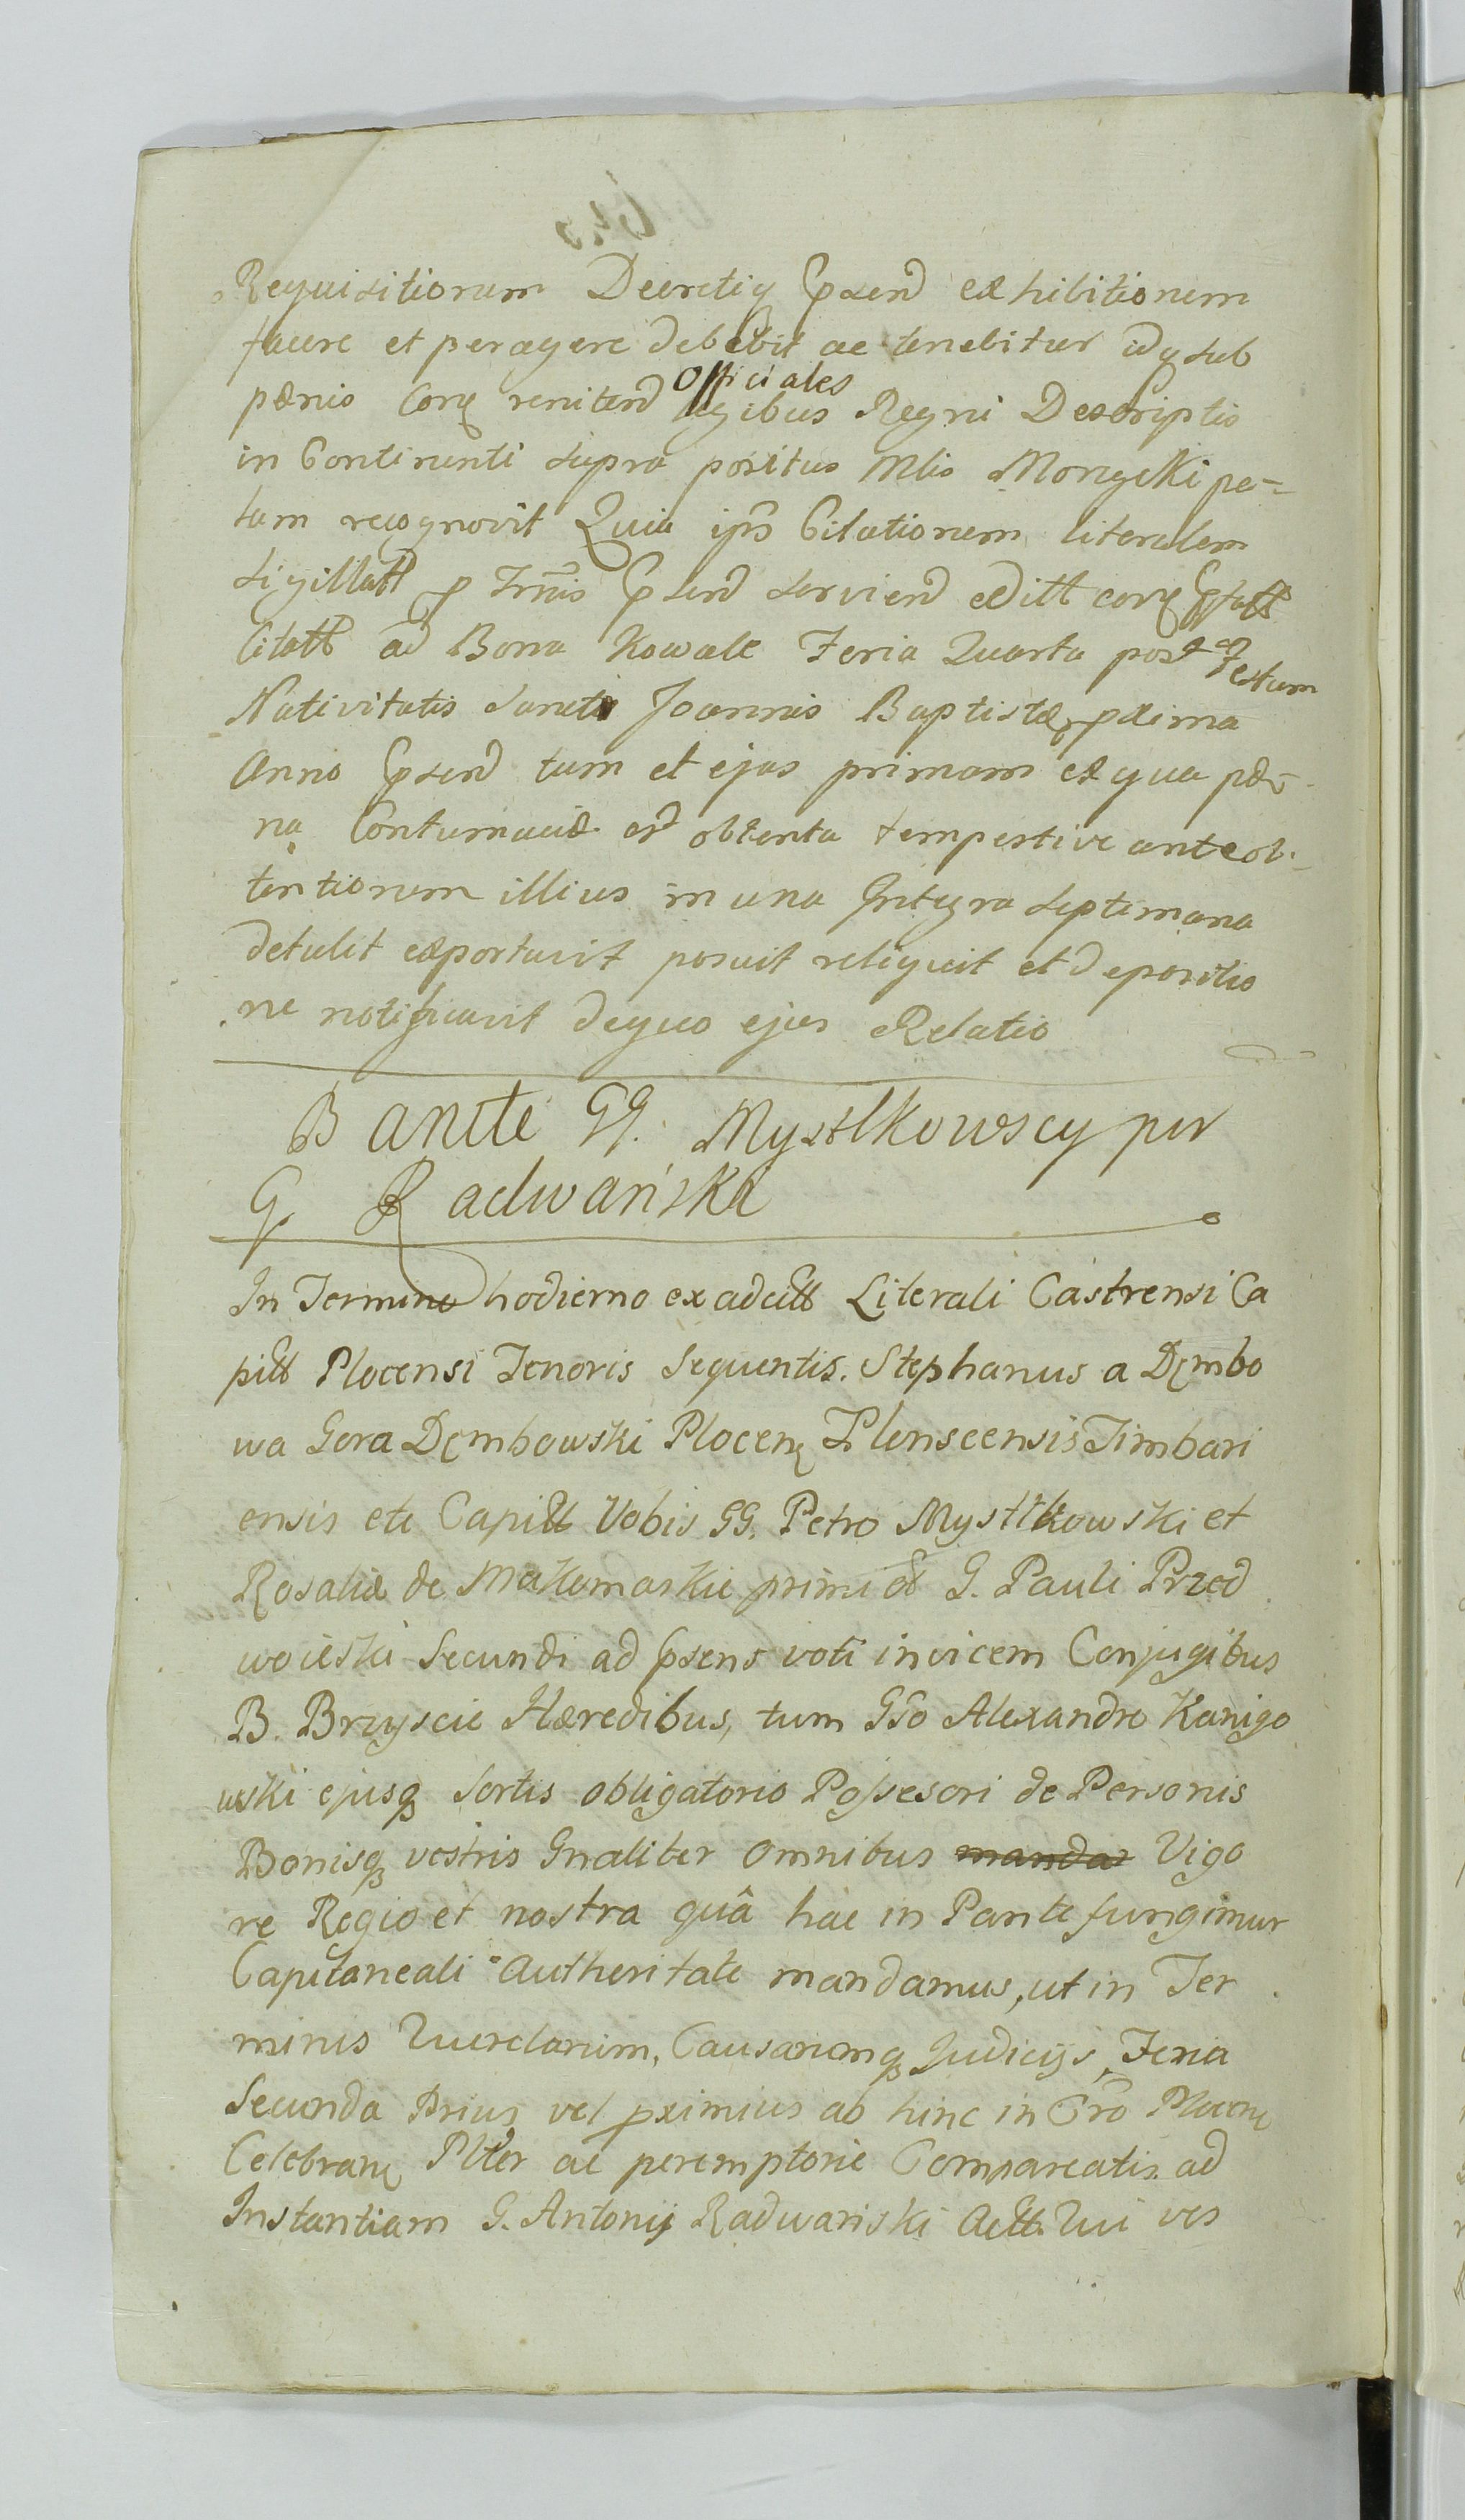 Requisitionum Decretiq Psend exhibitionem
facere et peragere debebit ac tenebitur idq sub
pænis Conę renitend Officiales legibus Regni Descriptis
in Continenti supra positus Mlis Mongelki pa-
lam recognovit Quia ips Citationem literalem
sigillatt p Trnis Psend serviend editt conę
Citatt ad Bona Kowale Feria Quarta post Festum
Nativitatis Sancti Joannis Baptistæ pxima
Anno Psend tum et ejus primam ex qua pæ-
na Contumaciæ est obtenta tempestive ante ob-
tentionem illius in una Integra septimana
detulit exportavit posuit reliquit et depositio
ne notificavit dequo ejus Relatio
Banite GG. Mystkowscy per
G. Radwański
In Termino hodierno ex adcitt Literali Castrensi Ca
pitt Plocensi Tenoris Sequentis. Stephanus a Dęmbo
wa Gora Dęmbowski Plocenę Plonscensis Timbari
ensis etc Capitt Vobis GG. Petro Mystkowski et
Rosaliæ de Makomaskie primi et G. Pauli Przed
woieski Secundi ad Psens voti invicem Conjugibus
B. Brzyscie Hæredibus, tum Gso Alexandro Kanigo
wski ejusq Sortis obligatorio Possesori de Personis
Bonisq vestris Gnaliter omnibus manda Vigo
re Regio et nostra quâ hac in Parte fungimur
Capitaneali Autheritate mandamus, ut in Ter
minis Querelarum, Causarumq Judicijs, Feria
Secunda Prius vel pximius ab hinc in Cro Plocenę
Celebranę Plter ac peremptorie Compareatis ad
Instantiam G. Antonij Radwański Actt. Qui vos